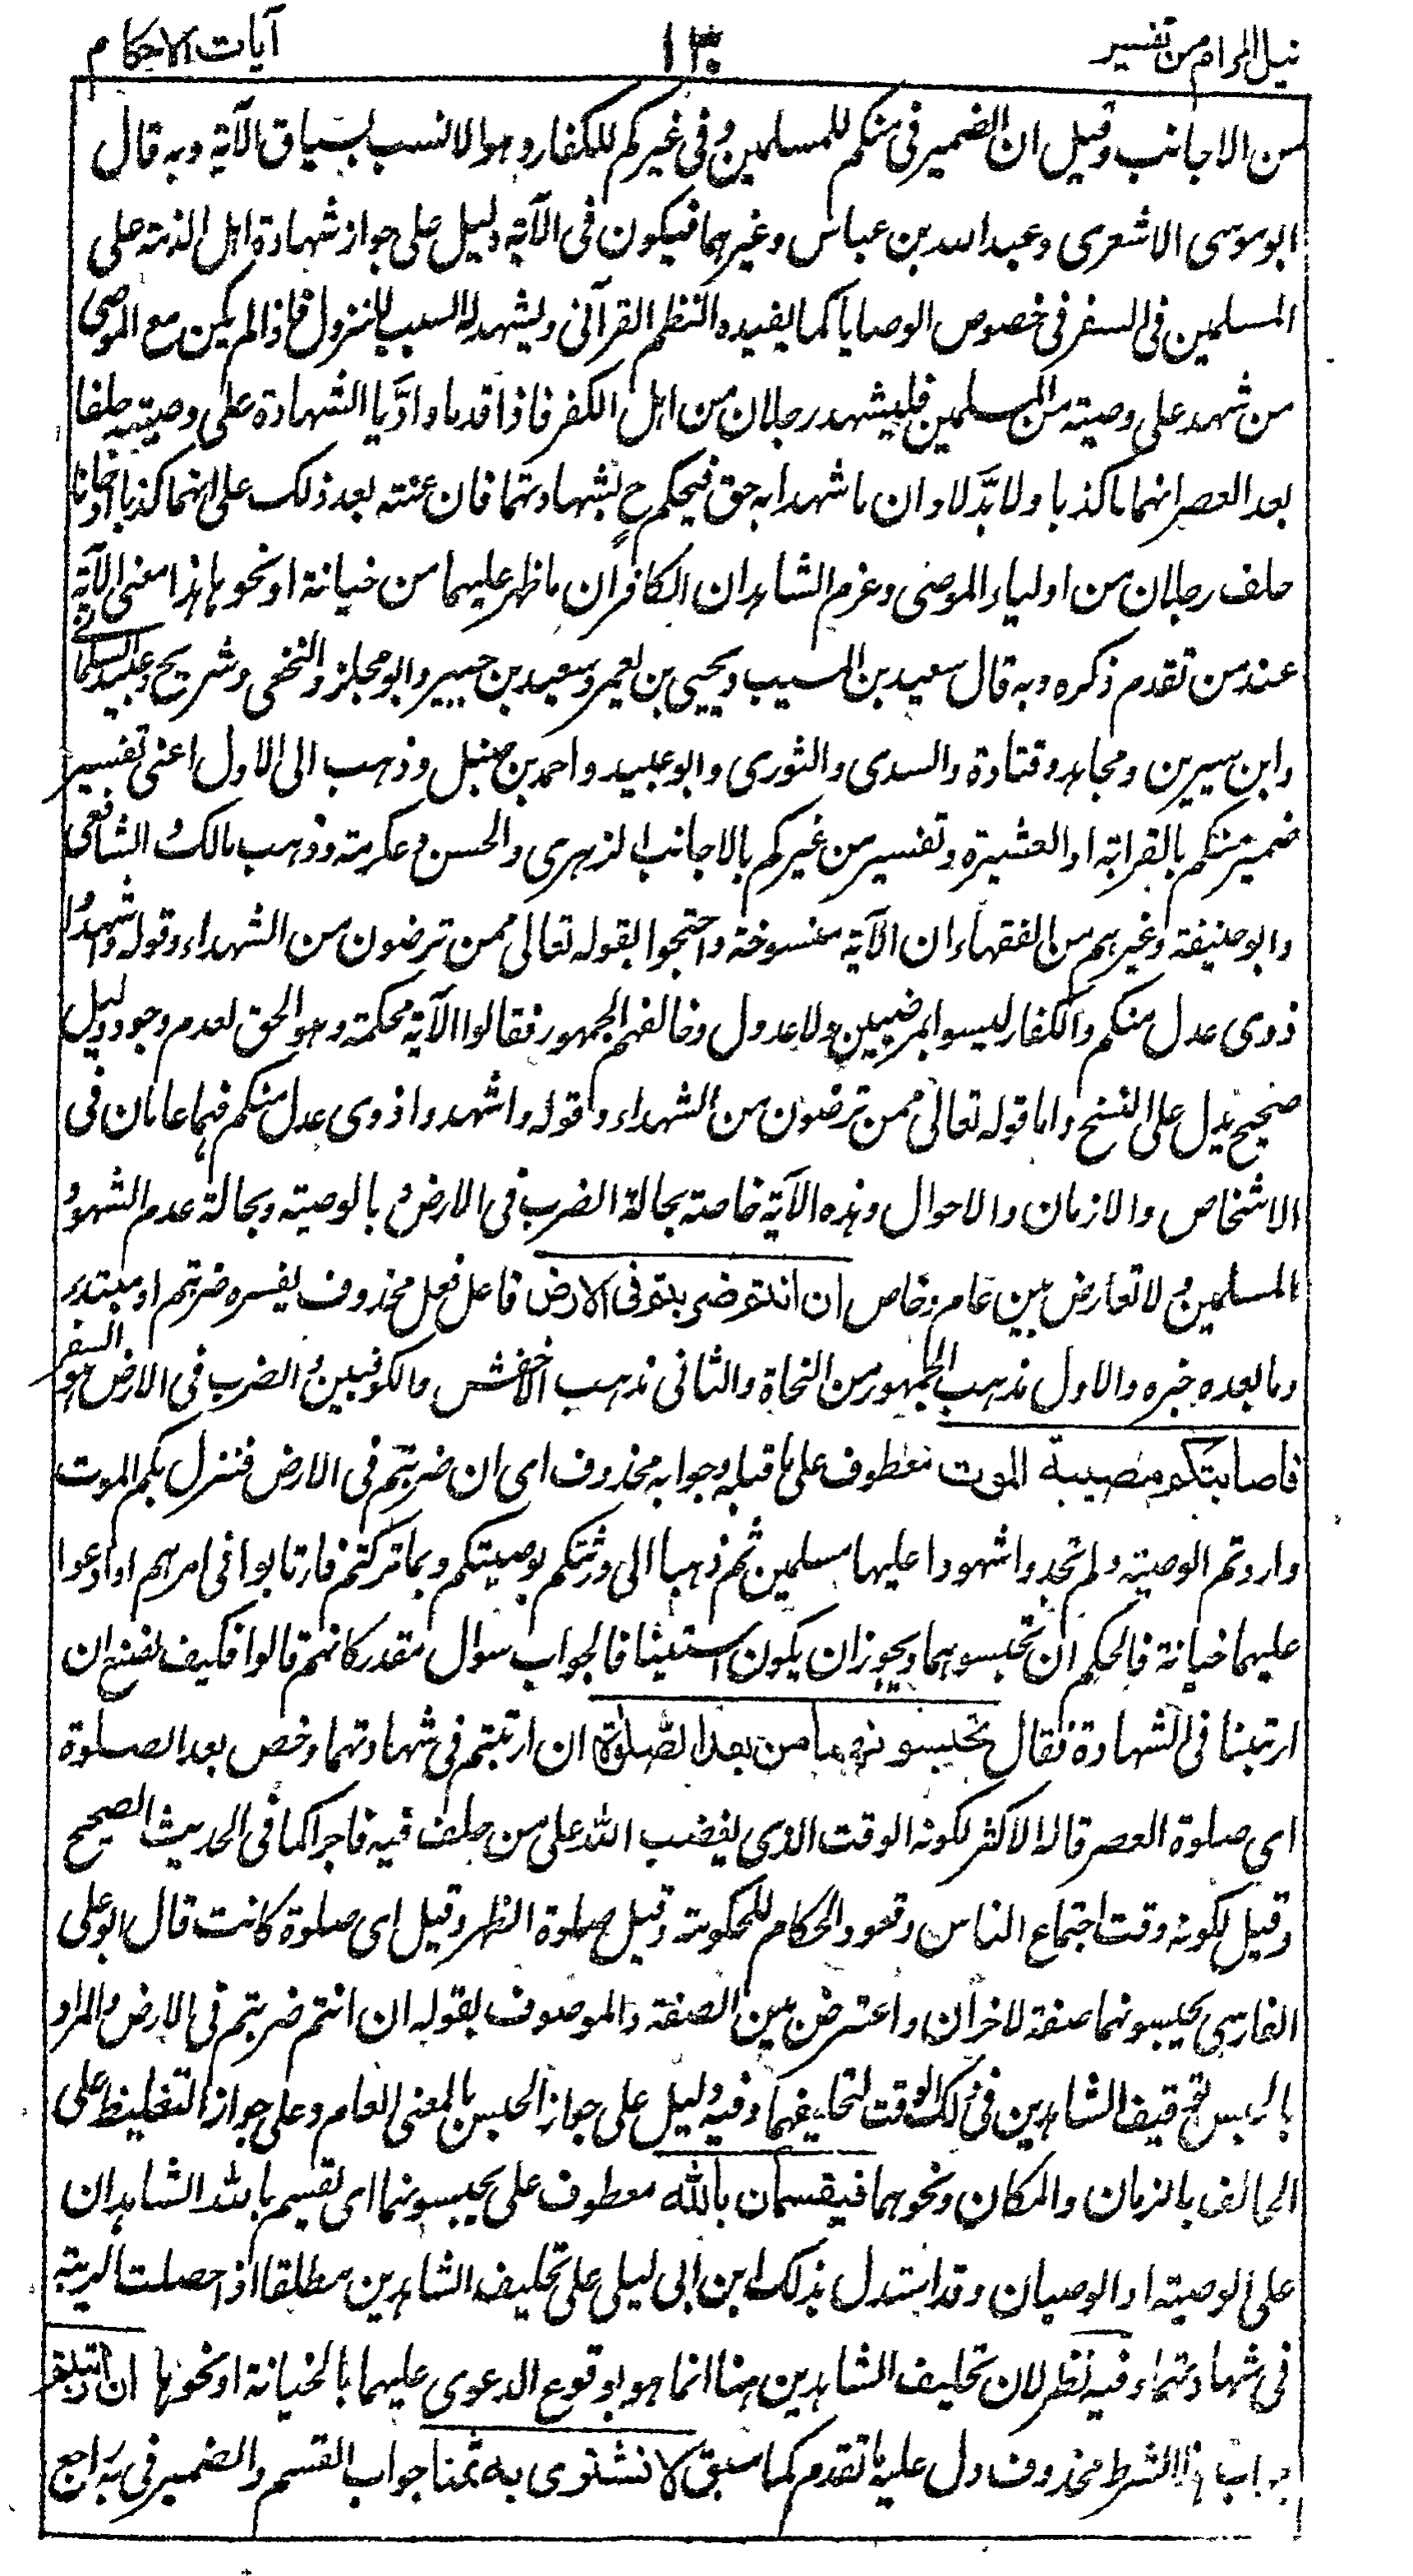 نيل المرام من تفسير ١٣٠ آيات الاحكام
من الاجانب وقيل ان الضمير فى منكم للمسلمين وفى غيركم للكفار وهو الانسب بسياق الآية وبه قال
ابو موسى الاشعرى وعبد الله بن عباس وغيرهما فيكون فى الآية دليل على جواز شهادة اهل الذمة على
المسلمين فى السفر فى خصوص الوصايا كما يفيده النظم القرآنى ويشهد له السبب للنزول فاذا لم يكن مع الموصى
من شهد على وصيته من المسلمين فليشهد رجلان من اهل الكفر فاذا قدما وادَّيا الشهادة على وصيته حلفا
بعد العصر انهما ما كذبا ولا بدَّلا وان ما شهدا به حق فيحكم ح بشهادتهما فان عثر بعد ذلك على انهما كذبا او خانا
حلف رجلان من اولياء الموصى وغرم الشاهدان الكافران ما ظهر عليهما من خيانة او نحوها هذا معنى الآية
عند من تقدم ذكره وبه قال سعيد بن المسيب ويحيى بن يعمر وسعيد بن جبير وابو مجلز والنخعى وشريح وعبيدة السلمانى
وابن سيرين ومجاهد وقتادة والسدى والثورى وابو عبيد واحمد بن حنبل وذهب الى الاول اعنى تفسير
ضمير منكم بالقرابة او العشيرة وتفسير من غيركم بالاجانب الزهرى والحسن وعكرمة وذهب مالك والشافعى
وابو حنيفة وغيرهم من الفقهاء ان الآية منسوخة واحتجوا بقوله تعالى ممن ترضون من الشهداء وقوله واشهدوا
ذوى عدل منكم والكفار ليسوا بمرضيين ولا عدول وخالفهم الجمهور فقالوا الآية محكمة وهو الحق لعدم وجود دليل
صحيح يدل على النسخ واما قوله تعالى ممن ترضون من الشهداء وقوله واشهدوا ذوى عدل منكم فهما عامان فى
الاشخاص والازمان والاحوال وهذه الآية خاصة بحالة الضرب فى الارض وبالوصية وبحالة عدم الشهود
المسلمين ولا تعارض بين عام وخاص ان انتم ضربتم فى الارض فاعل فعل محذوف يفسره ضربتم او مبتدء
وما بعده خبره والاول مذهب الجمهور من النحاة والثانى مذهب الاخفش والكوفيين والضرب فى الارض هو السفر
فاصابتكم مصيبة الموت معطوف على ما قبله وجوابه محذوف اى ان ضربتم فى الارض فنزل بكم الموت
واردتم الوصية ولم تجدوا شهودا عليها مسلمين ثم ذهبا الى ورثتكم بوصيتكم وبما تركتم فارتابوا فى امرهم او ادعوا
عليهما خيانة فالحكم ان تحبسوهما ويجوز ان يكون استينافا لجواب سوال مقدر كانهم قالوا فكيف نصنع ان
ارتبنا فى الشهادة فقال تحبسونهما من بعد الصلوٰة ان ارتبتم فى شهادتهما وخص بعد الصلوة
اى صلوة العصر قاله الاكثر لكونه الوقت الذى يغضب الله على من حلف فيه فاجرا كما فى الحديث الصحيح
وقيل لكونه وقت اجتماع الناس وقعود الحكام للحكومة وقيل صلوة الظهر وقيل اى صلوة كانت قال ابو على
الفارسى تحبسونهما صفة لاخران واعترض بين الصفة والموصوف بقوله ان انتم ضربتم فى الارض والمراد
بالحبس توقيف الشاهدين فى ذلك الوقت لتحليفهما وفيه دليل على جواز الحبس بالمعنى العام وعلى جواز التغليظ على
الحالف بالزمان والمكان ونحوهما فيقسمان بالله معطوف على تحبسونهما اى يقسم بالله الشاهدان
على الوصية او الوصيان وقد استدل بذلك ابن ابى ليلى على تحليف الشاهدين مطلقا اذا حصلت الريبة
فى شهادتهما وفيه نظر لان تحليف الشاهدين هنا انما هو بوقوع الدعوى عليهما بالخيانة او نحوها ان ارتبتم
جواب هذا الشرط محذوف دل عليه ما تقدم كما سبق لا نشترى به ثمنا جواب القسم والضمير فى به راجع